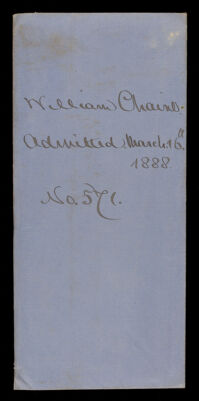 William Chains.
Admitted March 16th
1888.
No. 571.